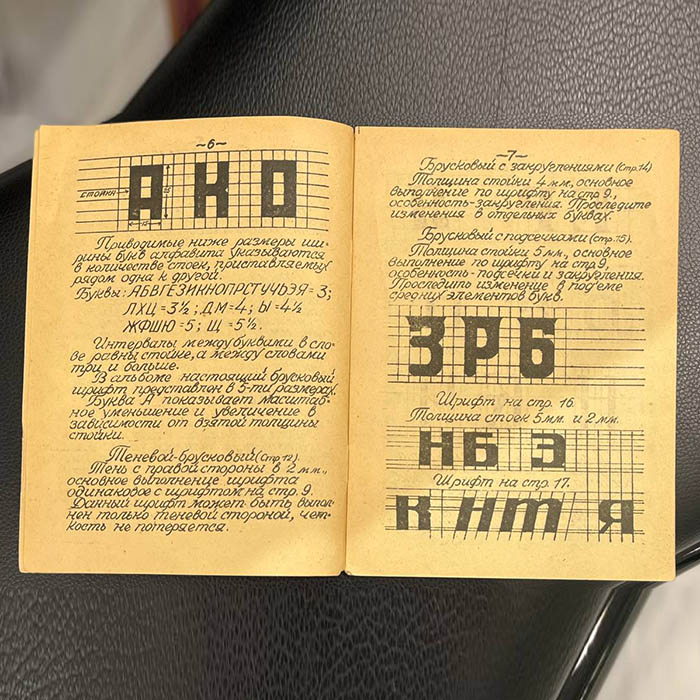 ~6~
АКО
СТОЙКА
Приводимые ниже размеры ши-
рины букв алфавита указываются
в количестве стоек, приставляемых
рядом одна к другой.
Буквы: АБВГЕЗИКНОПРСТУЧЬЭЯ = 3;
ЛХЦ = 3½; ДМ = 4; Ы = 4½
ЖФШЮ = 5; Щ = 5½.
Интервалы между буквами в сло-
ве равны стойке, а между словами
три и больше.
В альбоме настоящий брусковый
шрифт представлен в 5-ти размерах.
Буква А показывает масштаб-
ное уменьшение и увеличение в
зависимости от взятой толщины
стойки.
Теневой-Брусковый (Стр.12).
Тень с правой стороны в 2 мм.,
основное выполнение шрифта
одинаковое с шрифтом на стр. 9.
Данный шрифт может быть выпол-
нен только теневой стороной, чет-
кость не потеряется.
~7~
Брусковый с закруглениями (Стр.14)
Толщина стойки 4 мм, основное
выполнение по шрифту на стр 9,
особенность-закругления. Проследите
изменения в отдельных буквах.
Брусковый с подсечками (стр.15).
Толщина стойки 5 мм, основное
выполнение по шрифту на стр 9,
особенность-подсечки и закругления.
Проследить изменение в под'еме
средних элементов букв.
ЗРБ
Шрифт на стр. 16.
Толщина стоек 5 мм. и 2 мм.
НБ Э
Шрифт на стр. 17.
К НТ Я